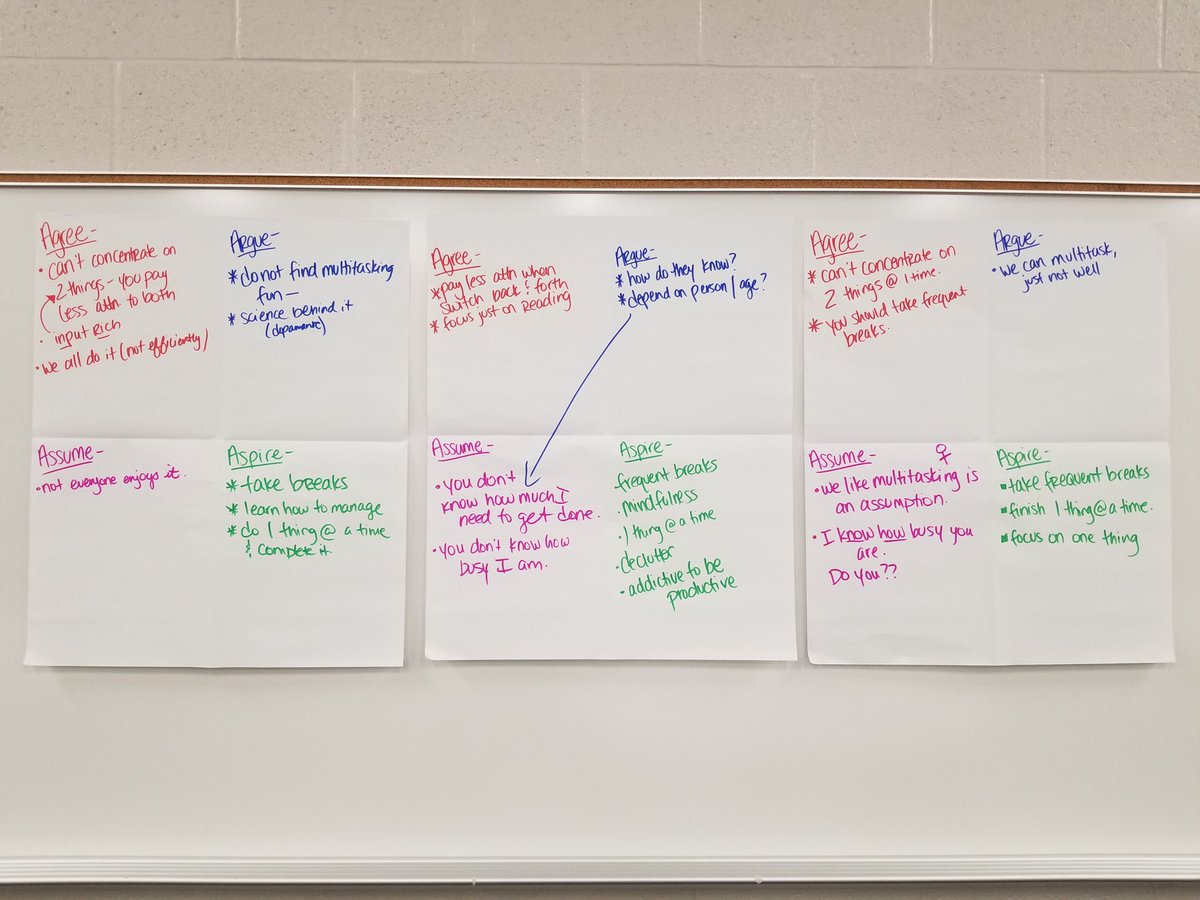 Agree-
• can't concentrate on
2 things - you pay
less attn. to both
• input Rich
• we all do it (not efficiently)
Argue-
* do not find multitasking
fun -
* science behind it
Assume-
• not everyone enjoys it.
Aspire-
* take breaks
* learn how to manage
* do 1 thing @ a time
& complete it.
Agree-
* pay less attn when
switch back & forth
* focus just on Reading
Argue-
* how do they know?
* depend on person / age?
Assume-
• you don't
know how much I
need to get done.
• you don't know how
busy I am.
Aspire-
• frequent breaks
• mindfulness
• 1 thing @ a time
• declutter
• addictive to be
productive
Agree-
* can't concentrate on
2 things @ 1 time.
* you should take frequent
breaks.
Argue-
• we can multitask,
just not well
Assume- ♀
• we like multitasking is
an assumption.
• I know how busy you
are.
Do you??
Aspire-
▪ take frequent breaks
▪ finish 1 thing @ a time.
▪ focus on one thing